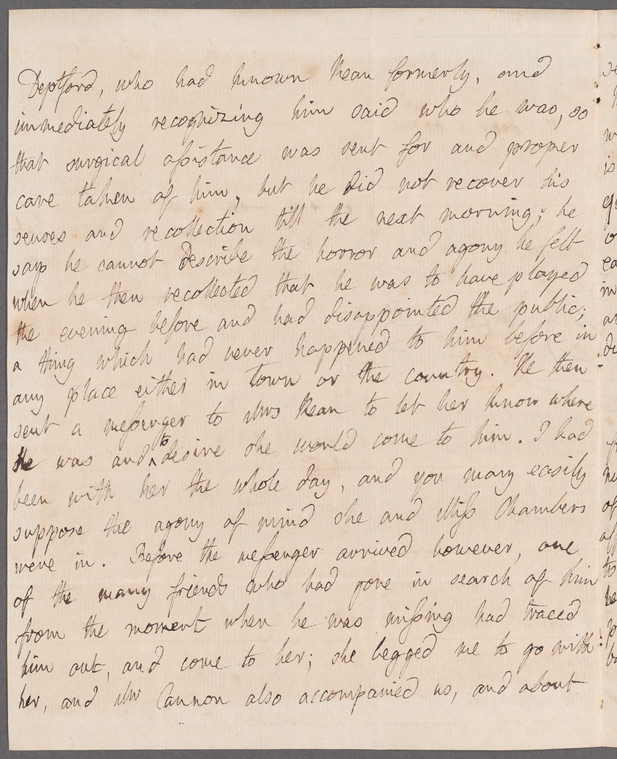 Deptford, who had known Kean formerly, and
immediately recognizing him said who he was, so
that surgical assistance was sent for and proper
care taken of him, but he did not recover his
senses and recollection till the next morning; he
says he cannot describe the horror and agony he felt
when he then recollected that he was to have played
the evening before and had disappointed the public;
a thing which had never happened to him before in
any place either in town or the country. He then
sent a messenger to Mrs Kean to let her know where
he was and to desire she would come to him. I had
been with her the whole day, and you may easily
suppose the agony of mind she and Miss Chambers
were in. Before the messenger arrived however, one
of the many friends who had gone in search of him
from the moment when he was missing had traced
him out, and come to her; she begged me to go with
her, and Mr Cannon also accompanied us, and about